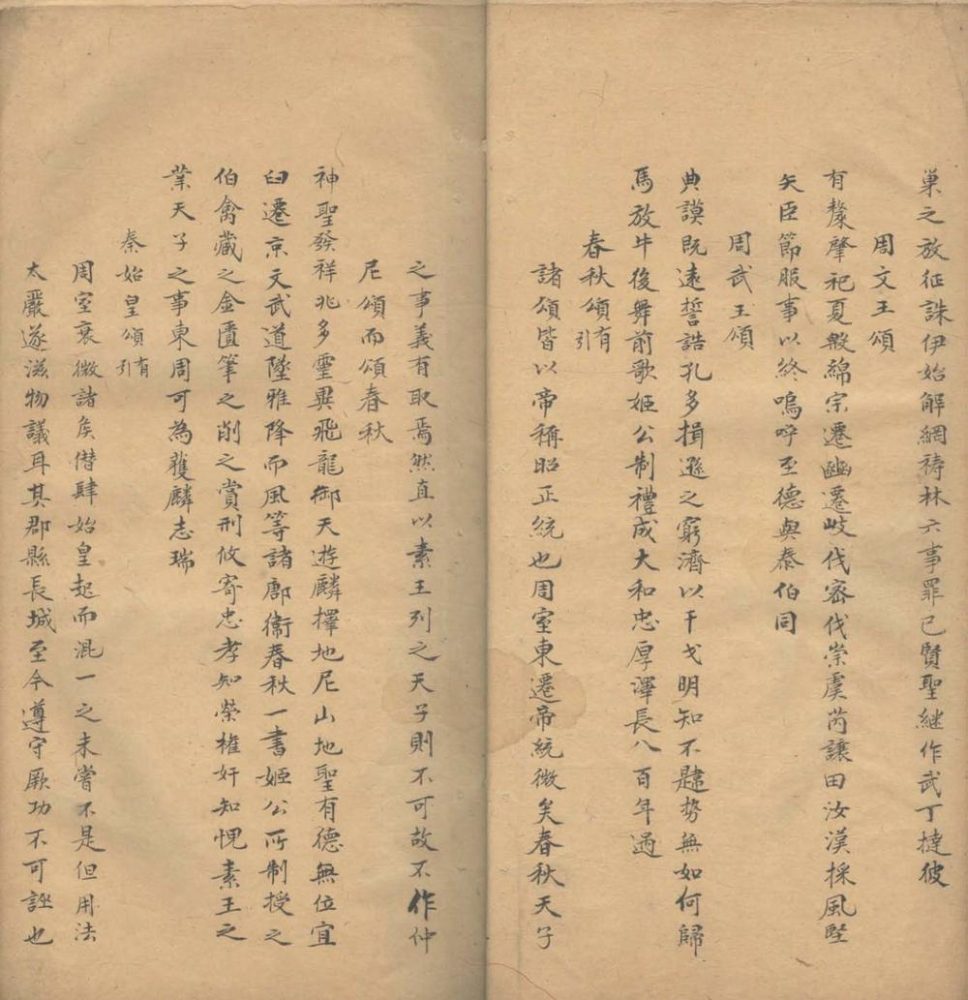 巢之放征誅伊始解網祷林六事罪已賢聖継作武丁撻彼
周文王頌
有漦肇祀夏殷綿宗遷豳遷岐伐宻伐崇虞芮讓田汝漢採風堅
矢臣節服事以終嗚呼至德與泰伯同
周武王頌
典謨既遠誓誥孔多揖遜之窮濟以干戈明知不韙势無如何歸
馬放牛後舞前歌姬公制禮成大和忠厚澤長八百年過
春秋頌有引
諸頌皆以帝稱昭正統也周室東遷帝統微矣春秋天子
之事義有取焉然直以素王列之天子則不可故不作仲
尼頌而頌春秋
神聖發祥兆多靈異飛龍御天遊麟擇地尼山地聖有德無位宜
臼遷京文武道墜雅降而風等諸鄘衞春秋一書姬公所制授之
伯禽藏之金匱筆之削之賞刑攸寄忠孝知榮權奸知愧素王之
業天子之事東周可為獲麟志瑞
秦始皇頌有引
周室衰微諸矦僣肆始皇起而混一之未嘗不是但用法
太嚴遂滋物議耳其郡縣長城至今遵守厥功不可誣也